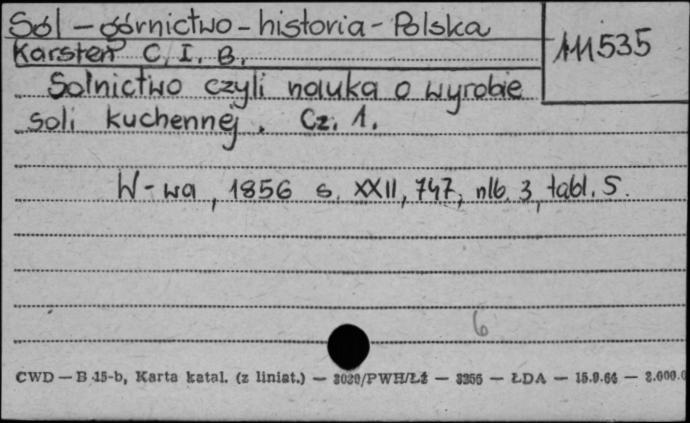 Sól - górnictwo - historia - Polska
111535
Karsten C. I. B.
Solnictwo czyli nauka o wyrobie
soli kuchennej. Cz. 1.
W-wa, 1856 s. XXII, 747, nlb. 3, tabl. 5.
6
CWD — B 15-b, Karta katal. (z liniat.) — 3030/PWH/Łż — 3255 — ŁDA — 15.9.64 — 2.000.0